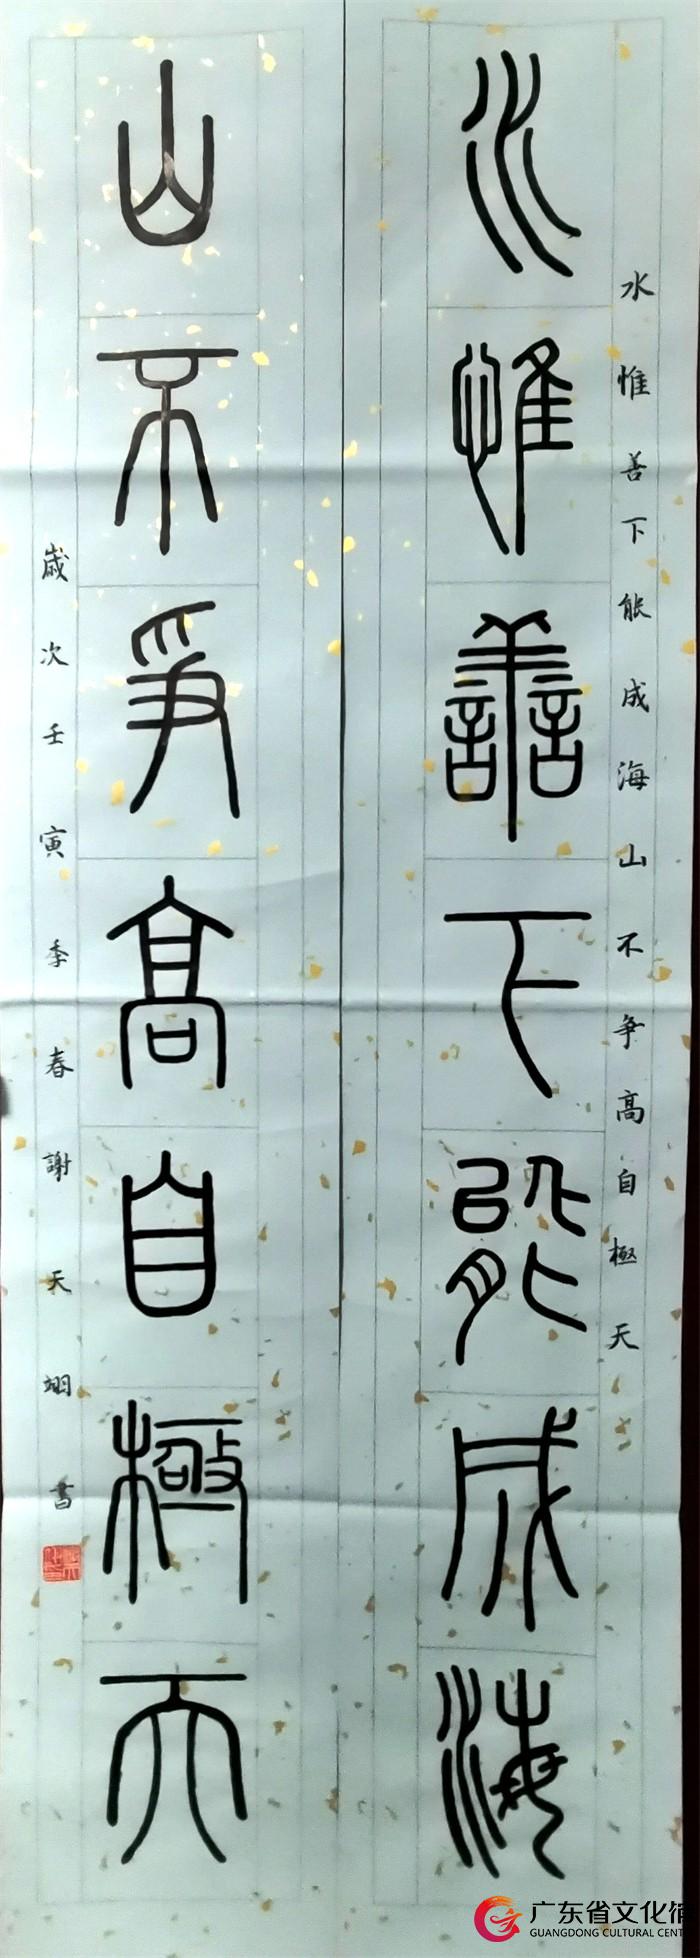 水惟善下能成海山不争高自極天
水惟善下能成海
山不爭高自極天
歲次壬寅季春謝天翊書
广东省文化馆
GUANGDONG CULTURAL CENT